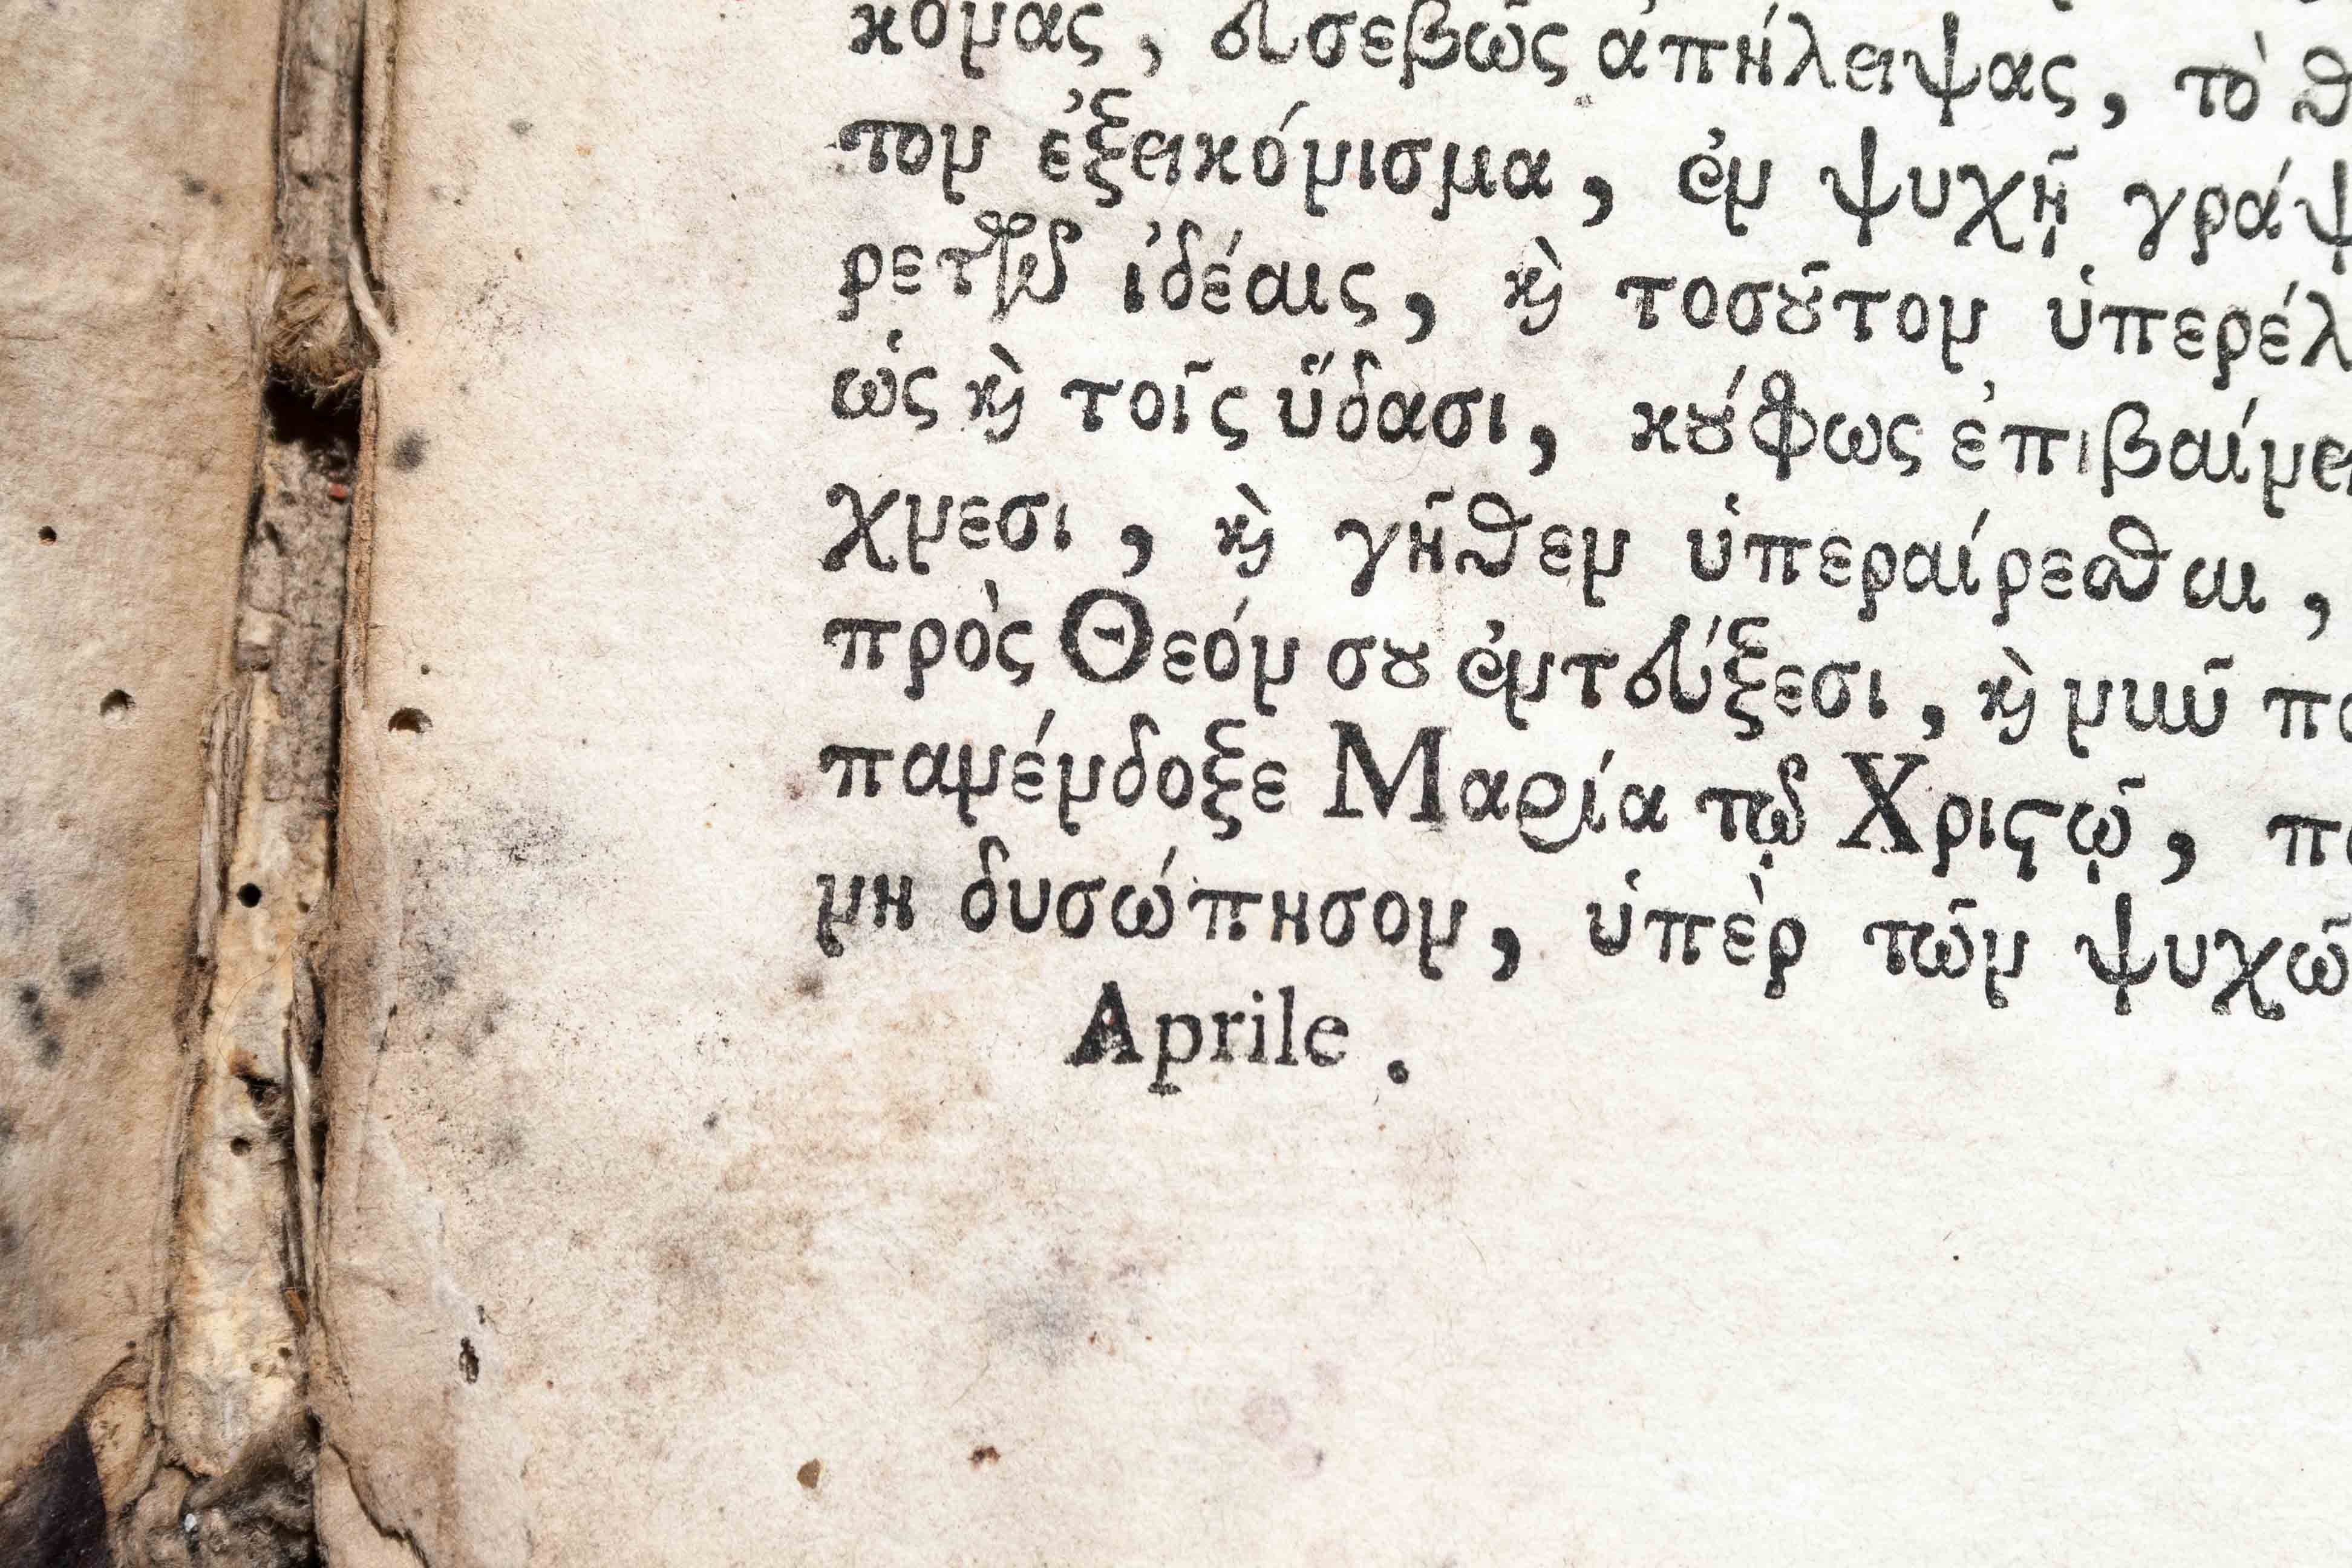 κόνας, εὐσεβῶς ἀπήλειψας, τὸ θ
τον ἐξεικόνισμα, ἐν ψυχῇ γράψ
ρετῶν ἰδέαις, καὶ τοσοῦτον ὑπερέλ
ὡς καὶ τοῖς ὕδασι, κούφως ἐπιβαίνει
χνεσι, καὶ γῆθεν ὑπεραίρεσθαι,
πρὸς Θεόν σου ἐντεύξεσι, καὶ νῦν πα
πανένδοξε Μαρία τῷ Χριστῷ, πα
νη δυσώπησον, ὑπὲρ τῶν ψυχῶ
Aprile.